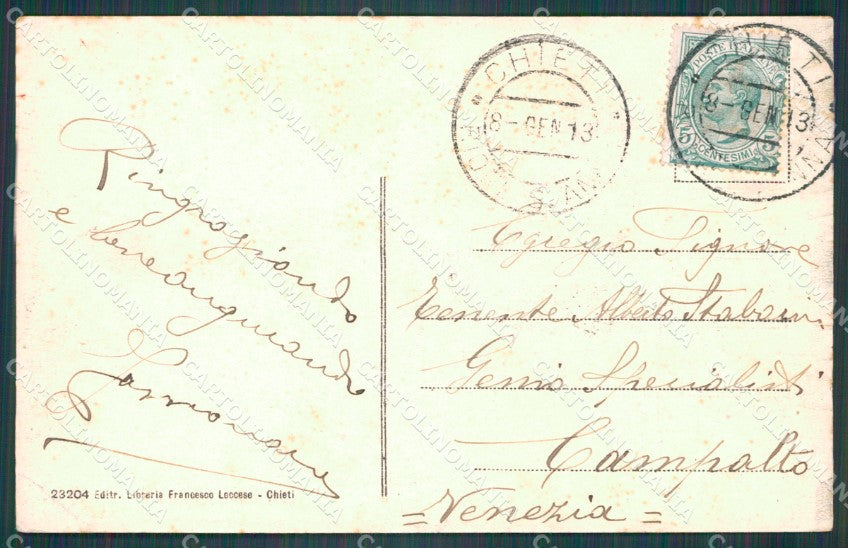 "CHIETI"
8-GEN 13
S. ANNA
POSTE ITALIANE
CENTESIMI
"CHIETI"
8-GEN 13
Ringraziando
e beneaugurando
Egregio Signore
Tenente Alberto
Genio Specialisti
Campalto
= Venezia =
23204 Editr. Libreria Francesco Loccese - Chieti
CARTOLINOMANIA